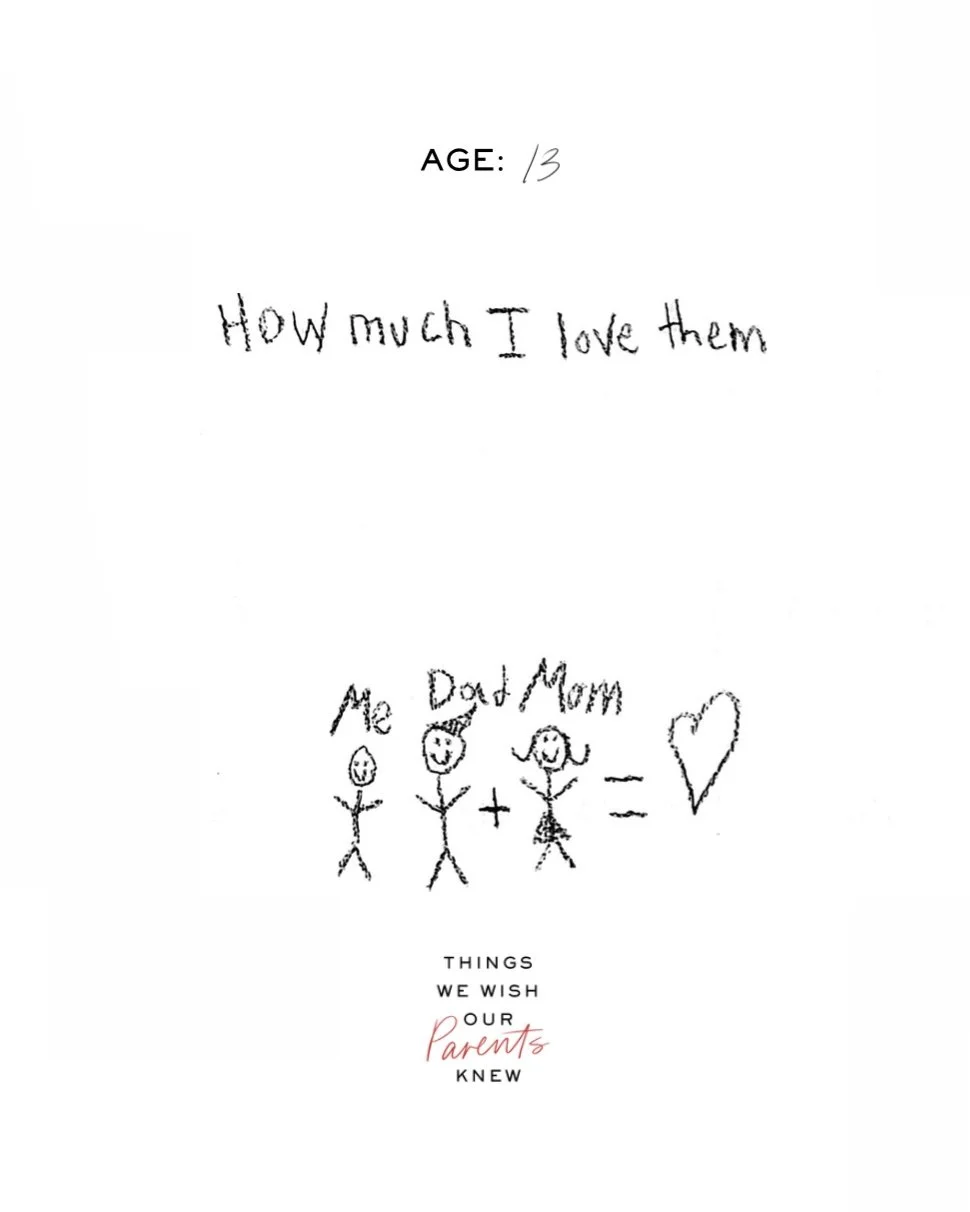 AGE: 13
How much I love them
Me Dad Mom
+ =
THINGS
WE WISH
OUR
Parents
KNEW